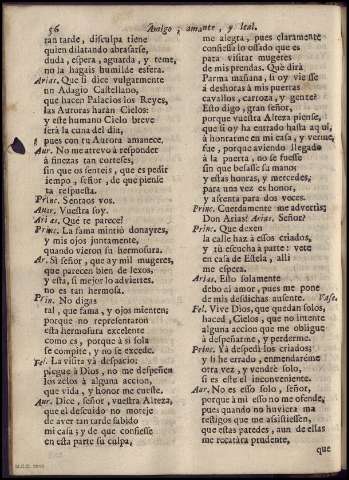 56
Amigo, amante, y leal.
tan tarde, disculpa tiene
quien dilatando abrasarse,
duda, espera, aguarda, y teme,
no la hagais humilde esfera.
Arias. Que ti dice vulgarmente
un Adagio Castellano,
que hacen Palacios los Reyes,
las Auroras harán Cielos:
y este humano Cielo breve
será la cuna del dia,
pues con tu Aurora amanece.
Aur. No me atrevo à responder
à finezas tan corteses,
sin que os senteis, que es pedir
tiempo, señor, de que piense
la respuesta.
Princ. Sentaos vos.
Aur. Vuestra soy.
Arias. Què te parece?
Princ. La fama mintiò donayres,
y mis ojos juntamente,
quando vieron su hermosura.
Ar. Sì señor, que ay mil mugeres,
que parecen bien de lexos,
y esta, si mejor lo adviertes,
no es tan hermosa.
Prin. No digas
tal, que fama, y ojos mienten;
porque no representaron
esta hermosura excelente
como es, porque à sì sola
se compite, y no se excede.
Fel. La visita và despacio;
plegue à Dios, no me despeñen
los zelos à alguna accion,
que vida, y honor me cueste.
Aur. Dice, señor, vuestra Alteza,
que el descuido no moteje
de aver tan tarde sabido
mi casa; y de que confiesse
en esta parte su culpa,
me alegra, pues claramente
confiessa lo osado que es
para visitar mugeres
de mis prendas. Què dirà
Parma mañana, si oy viesse
à deshoras à mis puertas
cavallos, carroza, y gente?
Esto digo, gran señor,
porque vuestra Alteza piense,
que si oy ha entrado hasta aqui,
à honrarme en mi casa, y verme,
fue, porque aviendo llegado
à la puerta, no se fuesse
sin que besasse su mano
y estas honras, y mercedes,
para una vez es honor,
y afrenta para dos veces.
Princ. Cuerdamente me advertis;
Don Arias? Arias. Señor?
Princ. Que dexen
la calle haz à essos criados,
y tù escucha à parte: vete
en casa de Estela, alli
me espera.
Arias. Esto solamente
debo al amor, pues me pone
de mis desdichas ausente. Vase.
Fel. Vive Dios, que quedan solos,
haced, Cielos, que no intente
alguna accion que me obligue
à despeñarme, y perderme.
Princ. Yà despedì los criados;
y si he errado, enmendarème
otra vez, y vendrè solo,
si es este el inconveniente.
Aur. No es esso solo, señor,
porque à mì esso no me ofende,
pues quando no huviera mas
testigos que me assistiessen,
que estas paredes, aun de ellas
me recatàra prudente,
que